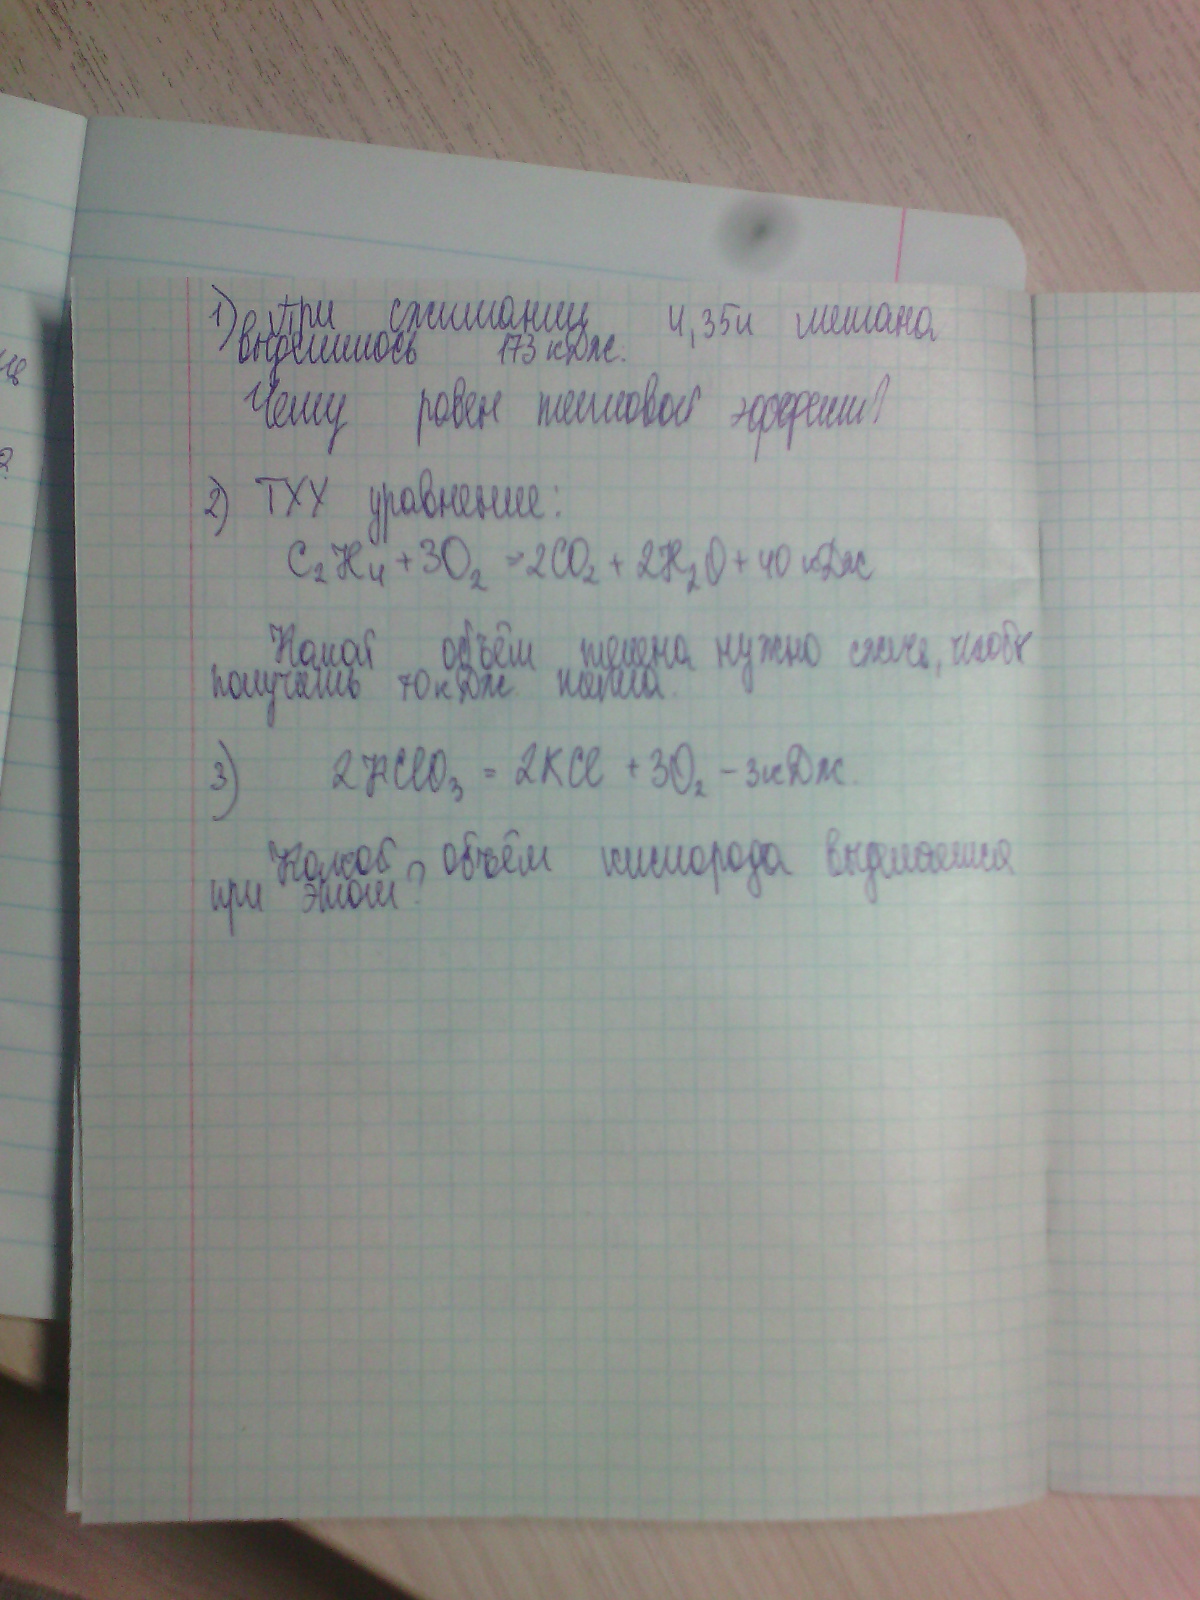 1) При сжигании 4,35л метана
выделилось 173 кДж.
Чему равен тепловой эффект?
2) ТХХ уравнение:
C₂H₄ + 3O₂ = 2CO₂ + 2H₂O + 40 кДж
Какой объём этилена нужно сжечь, чтобы
получить 70 кДж тепла.
3) 2KClO₃ = 2KCl + 3O₂ - 3 кДж.
Какой объём кислорода выделяется
при этом?